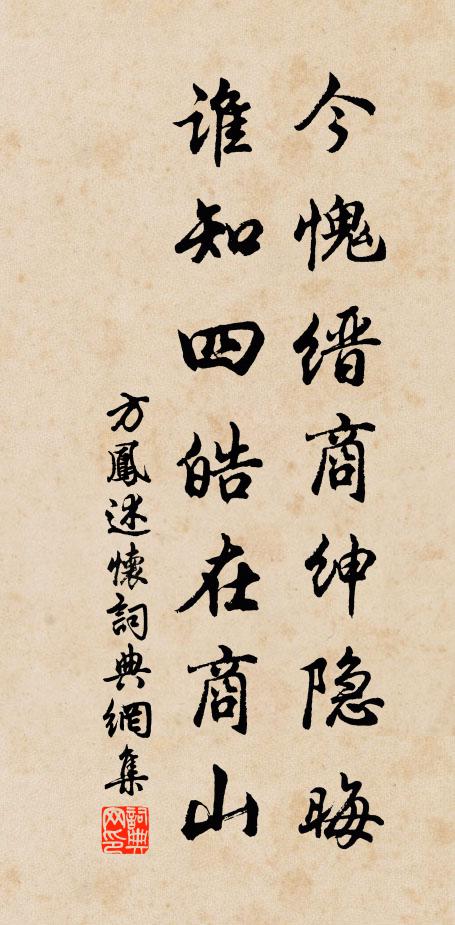 今愧缙商绅隐晦
谁知四皓在商山
方鳳述懷詞典網集
詞典网印